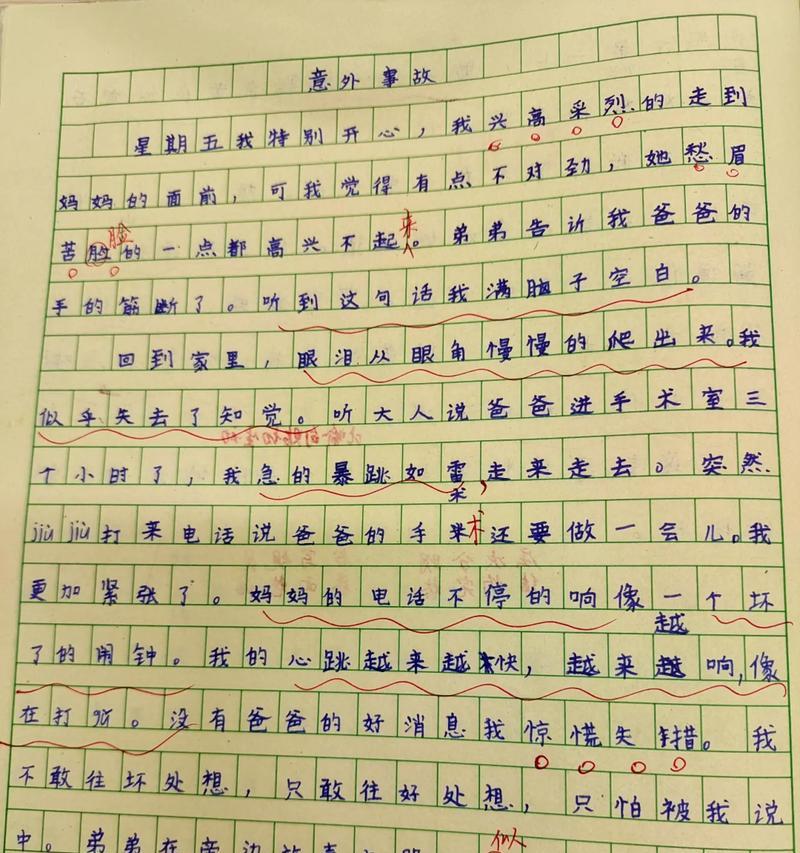 意外事故
星期五我特别开心，我兴高采烈的走到
妈妈的面前，可我觉得有点不对劲，她愁眉
苦脸的一点都高兴不起来。弟弟告诉我爸爸的
脸
手的筋断了。听到这句话我满脑子空白。
回到家里，眼泪从眼角慢慢的爬出来。我
似乎失去了知觉。听大人说爸爸进手术室三
个小时了，我急的暴跳如雷，走来走去。突然
术
jiù jiù打来电话说爸爸的手术还要做一会儿。我
更加紧张了。妈妈的电话不停的响像一个坏
越
了的闹钟。我的心跳越来越快，越来越响，像
在打
。没有爸爸的好消息我惊慌失措。我
不敢往坏处想，只敢往好处想，只怕被我说
似
中。弟弟在旁边